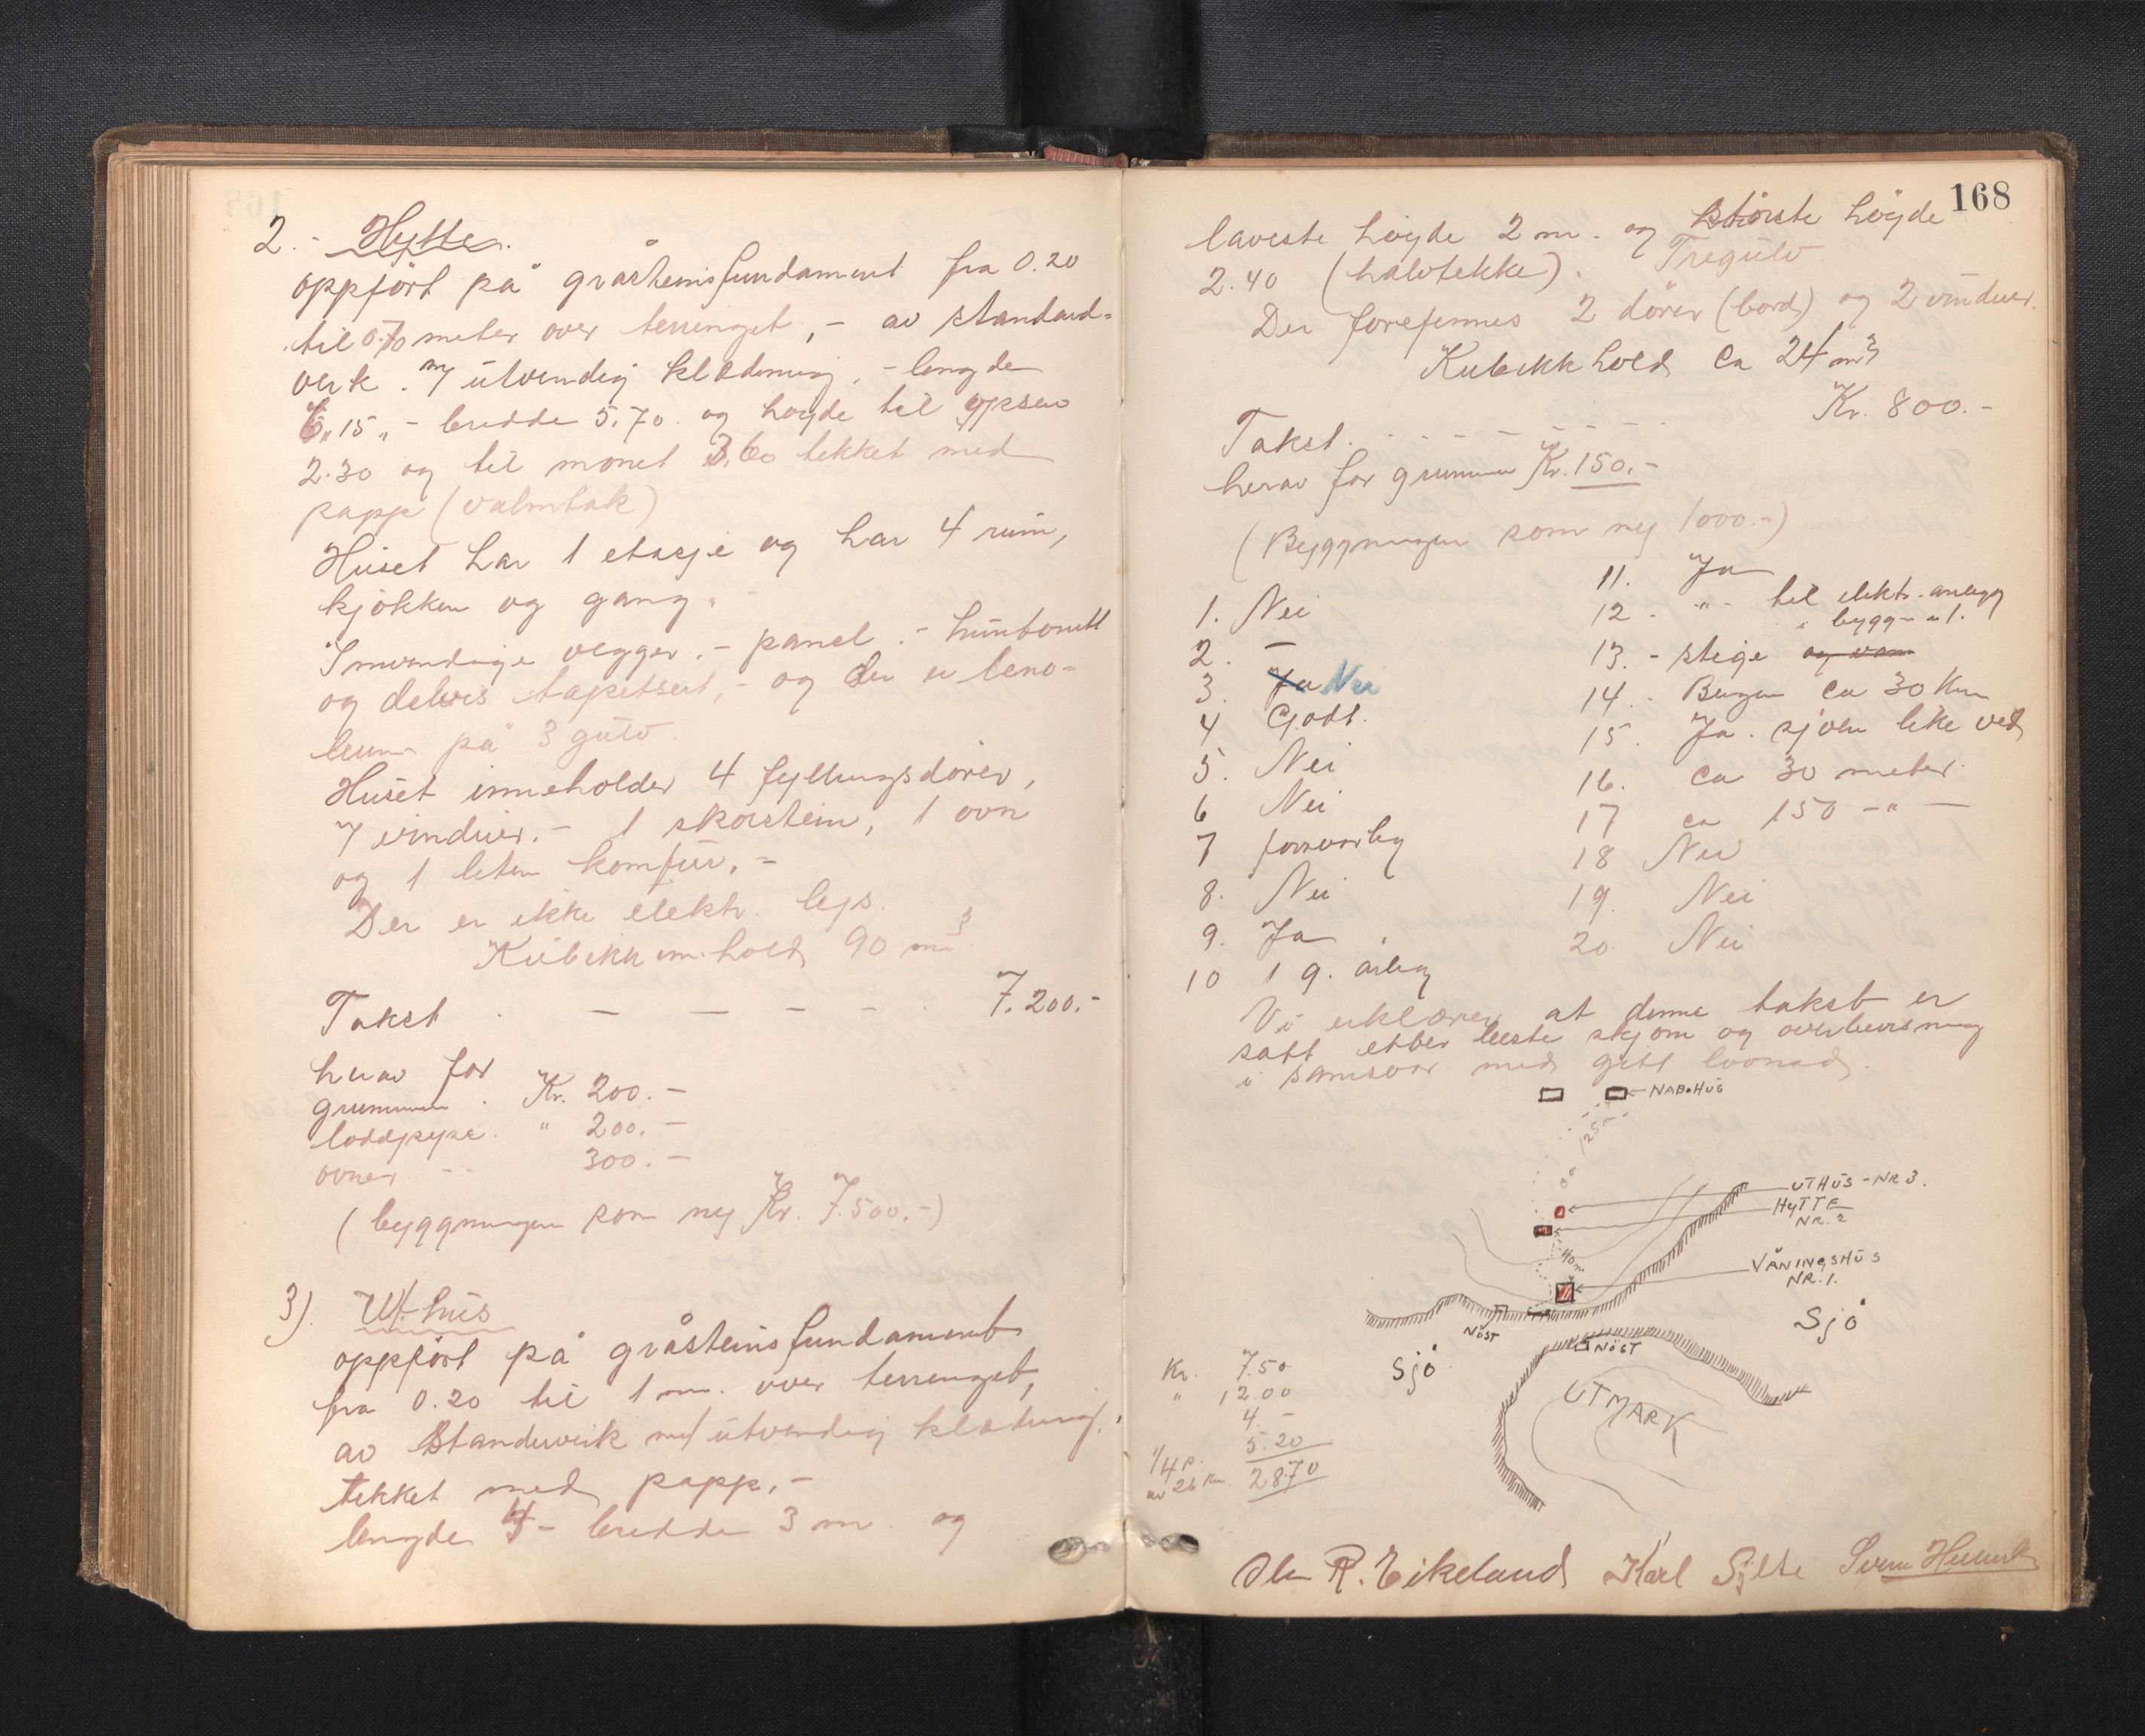 2.- Hytte.
oppført på gråsteinsfundament fra 0.20
til 0.70 meter over terrenget, - av standard=
verk. m/ utvendig kledning, - lengde
6,15, - bredde 5,70. og høyde til gesen
2.30 og til mønet 3,60 tekket med
papp (valmtak)
Huset har 1 etasje og har 4 rum,
kjøkken og gang.
Innvendige vegger. - panel. - huntonitt
og delvis tapetsert, - og der er leno=
leum på 3 gulv.
Huset inneholder 4 fyllingsdører,
7 vinduer. - 1 skorstein, 1 ovn
og 1 liten komfur. -
Der er ikke elektr. lys.
Kubikkinnhold 90 m3
Takst . - - - - . 7.200.-
herav for
grunnmur . Kr. 200.-
loddpipe. " 200.-
ovner -- 300.-
(bygningen som ny Kr. 7.500.-)
3). Uthus
oppført på gråsteinsfundament
fra 0.20 til 1 m. over terrenget,
av standerverk m/ utvendig kledning,
tekket med papp. -
lengde 4 - bredde 3 m. og
168
laveste høyde 2 m. og største høyde
2.40 (halvtekke). Tregulv.
Der forefinnes 2 dører (bord) og 2 vinduer.
Kubikkhold ca 24 m3
Takst. - - - - - - Kr. 800.-
herav for grunnmur Kr. 150.-
(Bygningen som ny 1000.-)
1. Nei
2. -
3. Ja Nei
4 Godt.
5. Nei
6 Nei
7 forsvarlig
8. Nei
9. Ja
10 1 g. årlig
11. Ja
12 - " - til elektr. anlegg
i bygg- n 1.
13. - stige og vann
14. - Bergen ca 30 Km
15. Ja. sjøen like ved
16. ca 30 meter.
17 ca 150 - " -
18 Nei
19. Nei
20. Nei
Vi erklærer at denne takst er
satt etter beste skjønn og overbevisning
i samsvar med gitt lovnad.
NABOHUS
125 m
UTHUS - NR 3.
HYTTE
NR. 2
40 m
VÅNINGSHUS
NR. 1.
NÖST
Sjø
Sjø
NÖST
UTMARK
Kr. 7.50
" 12.00
4. -
5.20
1/4 p.
av 26 Km. 28.70
Ole R. Eikeland Karl Sylte